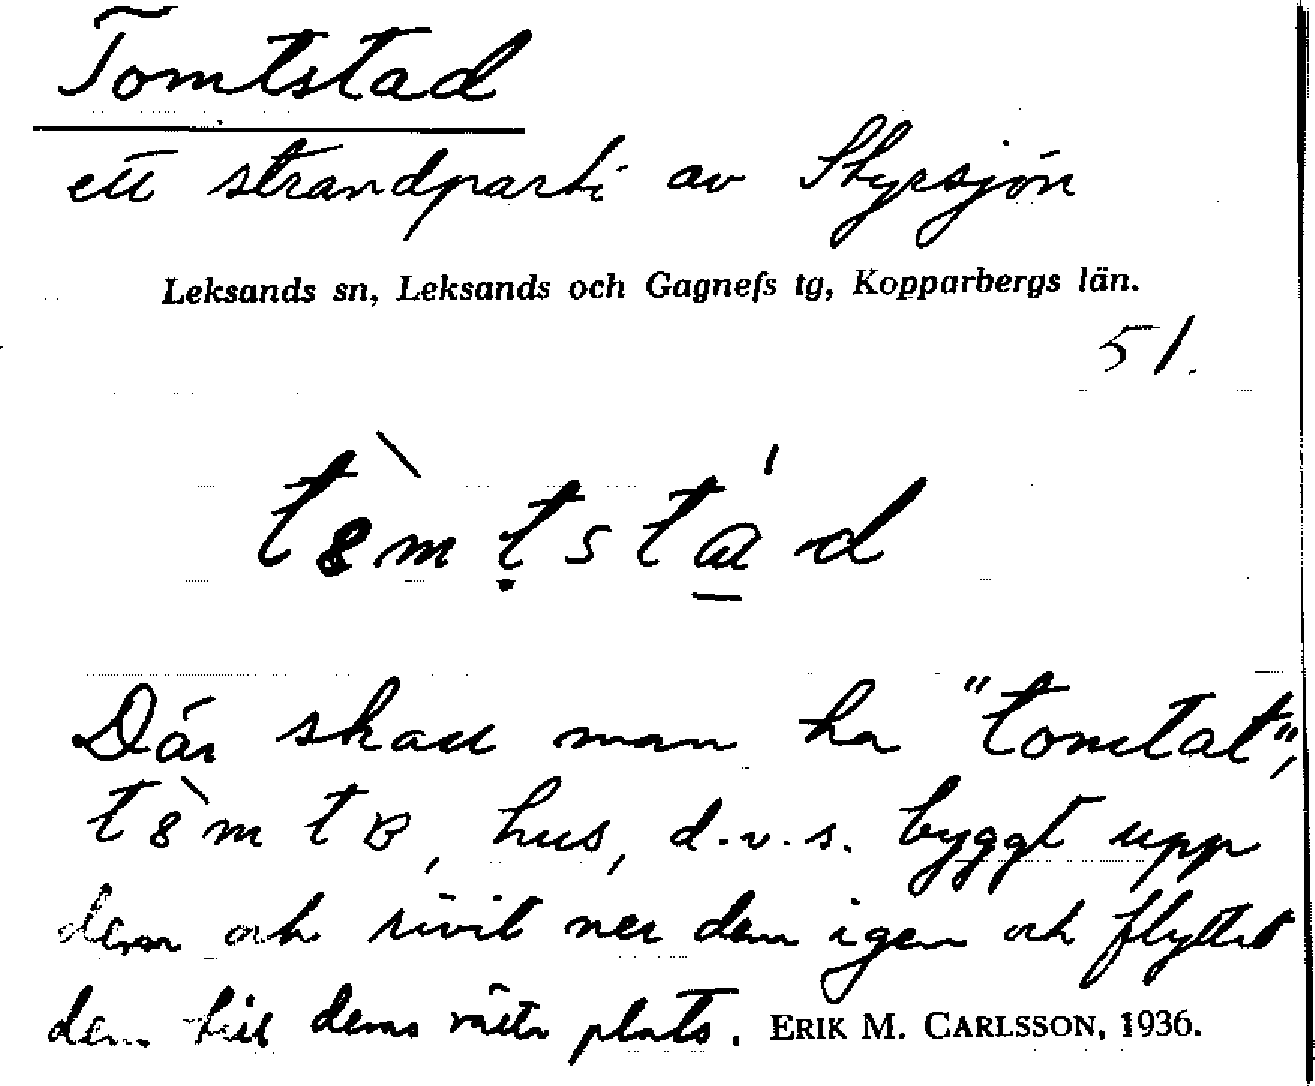 Tomtstad
ett strandparti av Styrsjön
Leksands sn, Leksands och Gagnefs tg, Kopparbergs län.
51.
Där skall man ha "tomtat",
hus, d.v.s. byggt upp
dem och rivit ner dem igen och flyttat
dem till deras rätta plats. ERIK M. CARLSSON, 1936.